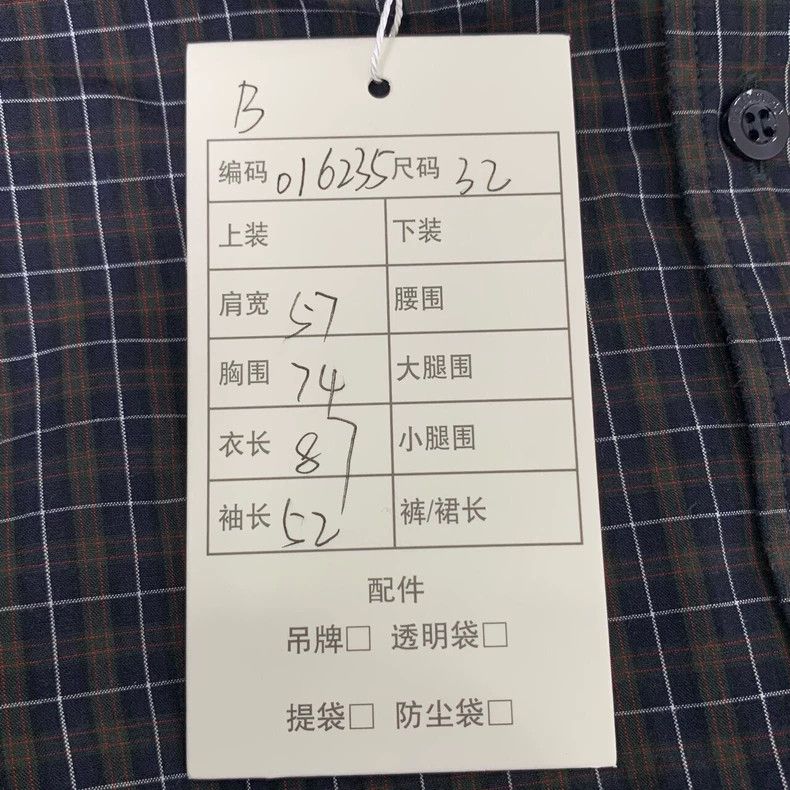 B
编码 016235 尺码 32
上装 下装
肩宽 57 腰围
胸围 74 大腿围
衣长 87 小腿围
袖长 52 裤/裙长
配件
吊牌□ 透明袋□
提袋□ 防尘袋□